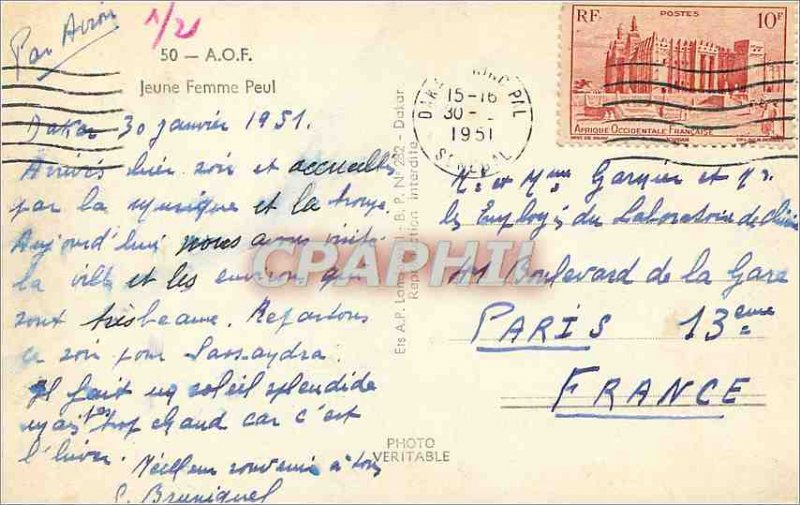 Par Avion
1/21
50 — A.O.F.
Jeune Femme Peul
Dakar 30 janvier 1951.
Arrivés hier soir et accueillis
par la musique et la troupe.
Aujourd'hui nous avons visité
la ville et les environs qui
sont très beaux. Repartons
ce soir pour Sassandra.
Il fait un soleil splendide
mais très trop chaud car c'est
l'hiver. Meilleur souvenir à tous
Bruniquel
Ets A.P. B.P. N° 282 - Dakar
Reproduction interdite
PHOTO
VERITABLE
CPAPHIL
RF POSTES 10F
AFRIQUE OCCIDENTALE FRANÇAISE
DAKAR PRINCIPAL
15-16
30 -
1951
SENEGAL
Mr et Mme Garnier et Mrs
les Employés du Laboratoire de
41 Boulevard de la Gare
PARIS 13ème
FRANCE